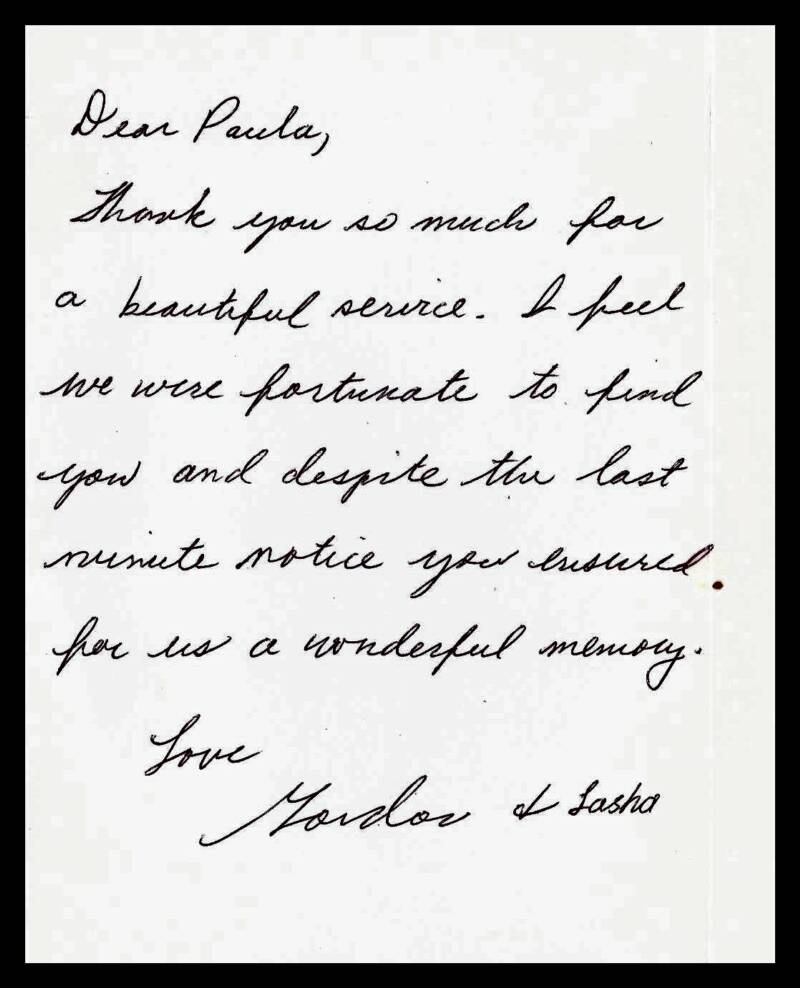 Dear Paula,
Thank you so much for
a beautiful service. I feel
we were fortunate to find
you and despite the last
minute notice you ensured
for us a wonderful memory.
Love
Gordon & Sasha